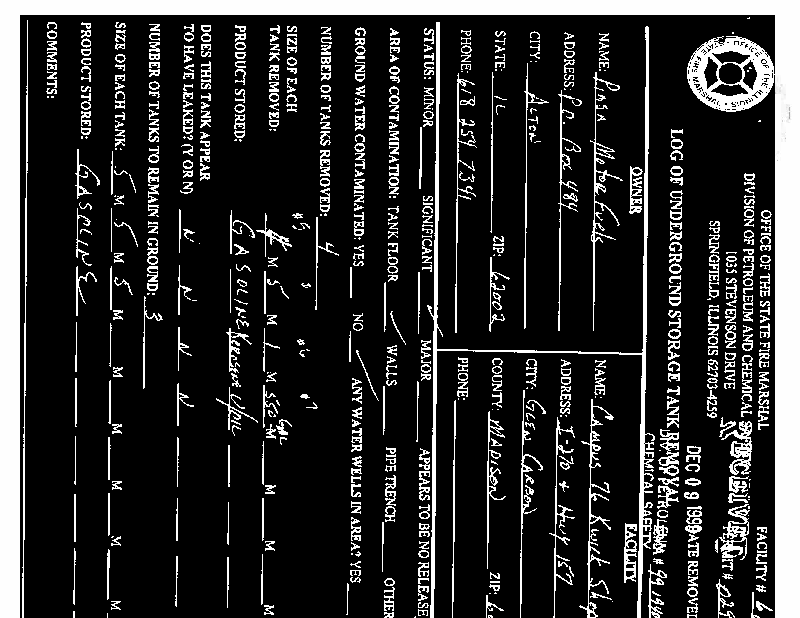 OFFICE OF THE STATE FIRE MARSHAL
DIVISION OF PETROLEUM AND CHEMICAL
1035 STEVENSON DRIVE
SPRINGFIELD, ILLINOIS 62703-4259
FACILITY # 6
PERMIT #
RECEIVED
DEC 09 1999
LOG OF UNDERGROUND STORAGE TANK REMOVAL
DATE REMOVED
CHEMICAL SAFETY
OWNER
NAME: Piasa Motor Fuels
ADDRESS: P.O. Box 484
CITY: Alton
STATE: IL ZIP: 62002
PHONE: 618 254 7341
FACILITY
NAME: Campus 76 Kwick Shop
ADDRESS: I-270 + Hwy 157
CITY: Glen Carbon
COUNTY: MADISON ZIP: 6
PHONE:
STATUS: MINOR SIGNIFICANT ✓ MAJOR APPEARS TO BE NO RELEASE
AREA OF CONTAMINATION: TANK FLOOR ✓ WALLS PIPE TRENCH OTHER
GROUND WATER CONTAMINATED: YES NO ✓ ANY WATER WELLS IN AREA? YES
NUMBER OF TANKS REMOVED: 4
SIZE OF EACH
TANK REMOVED: M 5 M 1 M 550 Gal M M M M
PRODUCT STORED: GASOLINE Kerosene
DOES THIS TANK APPEAR
TO HAVE LEAKED? (Y OR N) N N N N
NUMBER OF TANKS TO REMAIN IN GROUND: 3
SIZE OF EACH TANK: 5 M 5 M 5 M M M M M M
PRODUCT STORED: GASOLINE
COMMENTS: